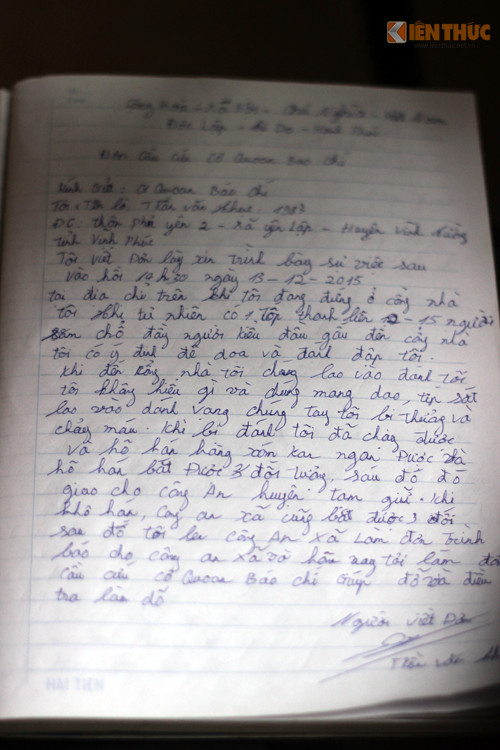 KIẾN THỨC
www.kienthuc.net.vn
Cộng Hoà - Xã Hội - Chủ Nghĩa - Việt Nam
Độc Lập - Tự Do - Hạnh Phúc
Đơn Cầu Cứu Cơ Quoan Báo Chí
Kính Gửi: Cơ Quoan Báo Chí
Tôi: Tên là Trần văn 1983
ĐC: thôn Phủ yên 2 - xã yên Lập - Huyện Vĩnh Tường
tỉnh Vĩnh Phúc
Tôi viết Đơn này xin trình bày sự việc sau
vào hồi 19h30 ngày 13-12-2015
tại địa chỉ trên khi tôi đang đứng ở cổng nhà
tôi thì tự nhiên có 1 tốp thanh liên 12-15 người
cầm chổ đầy người kiêu đâu gấu đến cổng nhà
tôi có ý định đe doạ và đánh đập tôi.
khi đến cổng nhà tôi chúng lao vào đánh tôi
tôi không hiểu gì và chúng mang dao, típ sắt
lao vào đánh vang chúng tay tôi bị thương và
chảy máu. khi bị đánh tôi đã chạy được
và hô hán hàng xóm can ngan Được và
hô hán bắt Được 3 đối tượng, sau đó đó
giao cho công An huyện tam giữ. khi
hô han, công an xã cũng bắt được 3 đối
sau đó tôi lên công An Xã Làm đơn trình
báo cho công an xã và hôm nay tôi làm đơn
cầu cứu cơ Quoan Báo chí Giúp đỡ và điều
tra làm rõ
Người viết Đơn
Trần văn
HAI TIEN